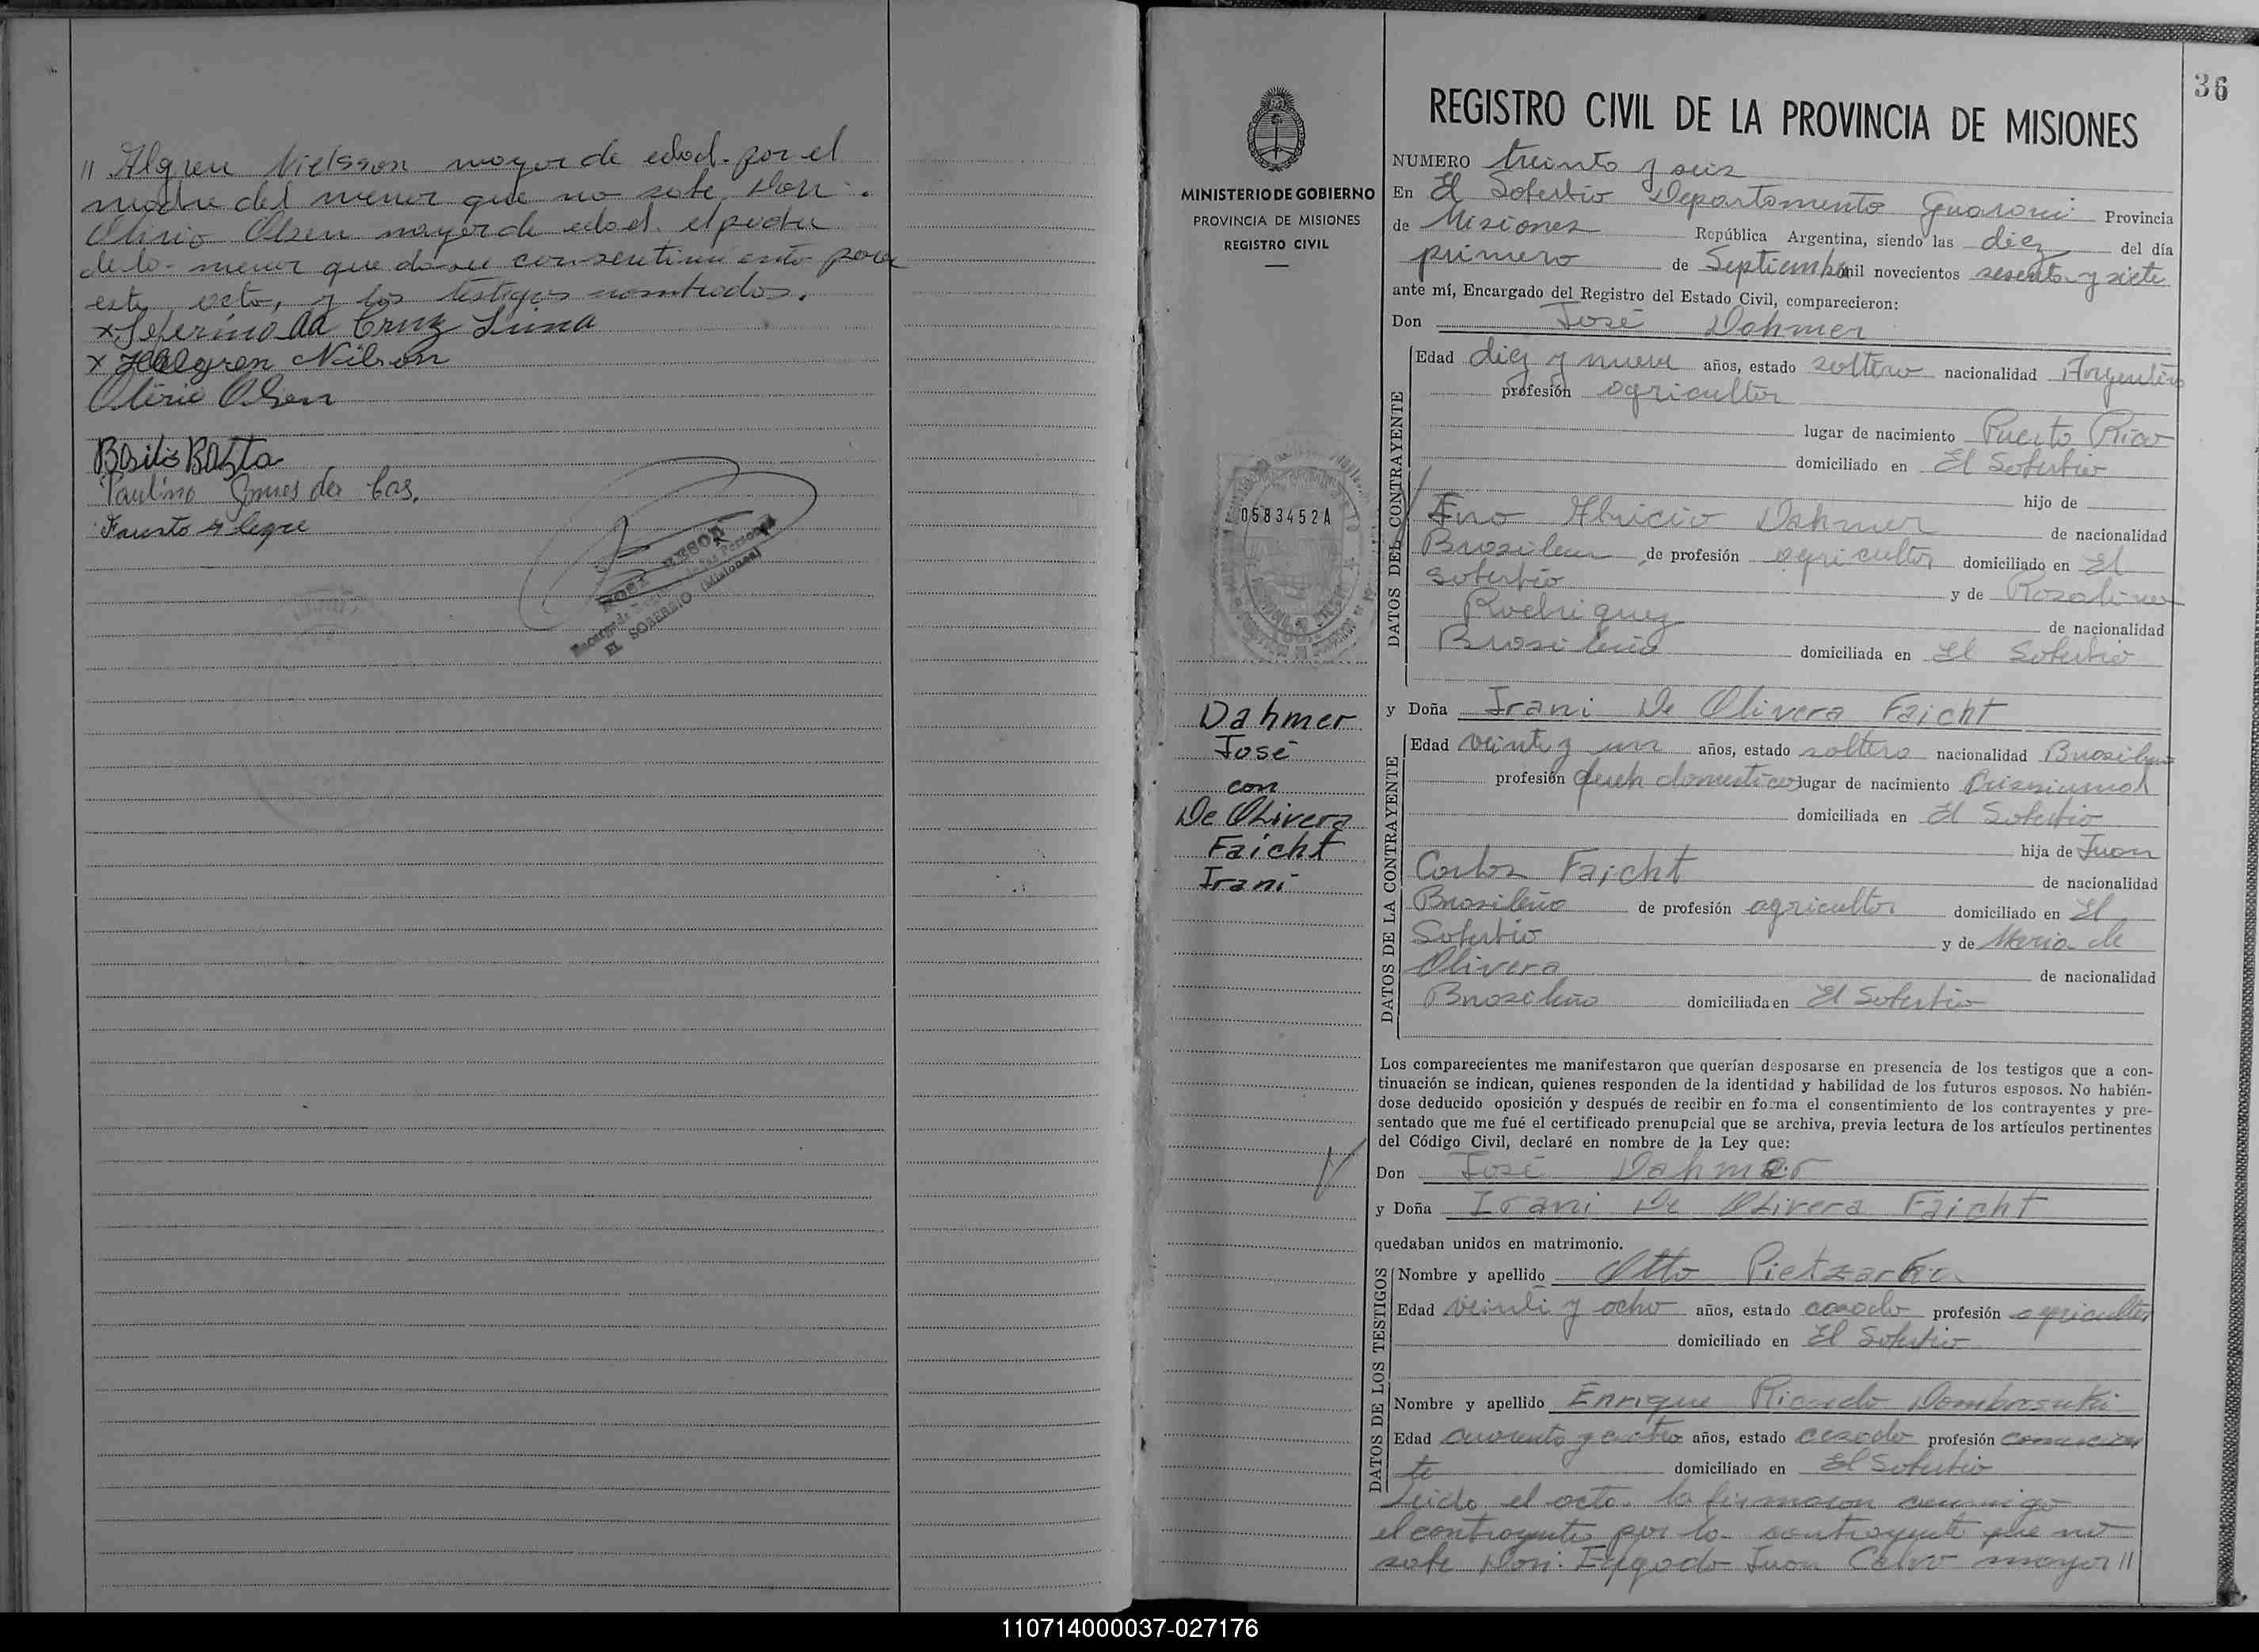 // Algren Nielsson mayor de edad. por el
madre del menor que no sabe Don:
Olirio Olsen mayor de edad. el padre
de la menor que da su consentimiento para
este acto, y los testigos nombrados.
x Seferino da Cruz Lima
x Hallgren Nilson
Olirio Olsen
Basilio Bazta
Paulino
Fausto Alegre
EL SOBERBIO (Misiones)
36
MINISTERIO DE GOBIERNO
PROVINCIA DE MISIONES
REGISTRO CIVIL
0583452A
Dahmer
José
con
De Olivera
Faicht
Irani
REGISTRO CIVIL DE LA PROVINCIA DE MISIONES
NUMERO treinta y seis
En El Soberbio Departamento Guarani Provincia
de Misiones República Argentina, siendo las diez del día
primero de Septiembre mil novecientos sesenta y siete
ante mí, Encargado del Registro del Estado Civil, comparecieron:
Don José Dahmer
DATOS DEL CONTRAYENTE
Edad diez y nueve años, estado soltero nacionalidad Argentino
profesión agricultor
lugar de nacimiento Puerto Rico
domiciliado en El Soberbio
hijo de
Dahmer de nacionalidad
Brasilero de profesión agricultor domiciliado en El
Soberbio y de Rosalina
Rodriguez de nacionalidad
Brasileña domiciliada en El Soberbio
y Doña Irani De Olivera Faicht
DATOS DE LA CONTRAYENTE
Edad veinte y un años, estado soltera nacionalidad Brasilera
profesión domesticos lugar de nacimiento
domiciliada en El Soberbio
hija de Juan
Carlos Faicht de nacionalidad
Brasileño de profesión agricultor domiciliado en El
Soberbio y de Maria de
Olivera de nacionalidad
Brasileña domiciliada en El Soberbio
Los comparecientes me manifestaron que querían desposarse en presencia de los testigos que a con-
tinuación se indican, quienes responden de la identidad y habilidad de los futuros esposos. No habién-
dose deducido oposición y después de recibir en forma el consentimiento de los contrayentes y pre-
sentado que me fué el certificado prenupcial que se archiva, previa lectura de los artículos pertinentes
del Código Civil, declaré en nombre de la Ley que:
Don José Dahmer
y Doña Irani De Olivera Faicht
quedaban unidos en matrimonio.
DATOS DE LOS TESTIGOS
Nombre y apellido Otto Pietzarka
Edad veinti y ocho años, estado casado profesión agricultor
domiciliado en El Soberbio
Nombre y apellido Enrique Ricardo Dombrosuki
Edad cuarenta y cuatro años, estado casado profesión comercian
te domiciliado en El Soberbio
Leida el acta. la firmaron conmigo
el contrayente por la contrayente que no
sabe Don: Juan Calvo mayor //
110714000037-027176